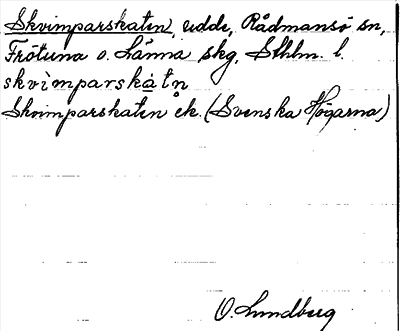 Skvimparskaten, udde, Rådmansö sn,
Frötuna o. Länna skg, Sthlm. l.
skvìmparskát̥n
Skvimparskaten ek. (Svenska Högarna)
O. Lundberg